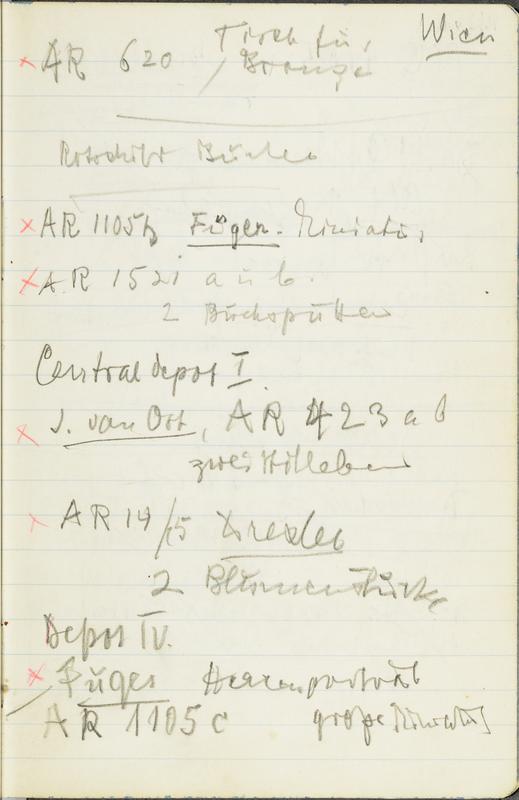 Wien
× AR 620 Tisch für,
/ Bronze
Rotschild Bücher
× AR 1105b Füger - Miniatur,
× AR 1521 a u b.
2 Buchsputten
Centraldepot I.
× J. van Ost, AR 423 a b
zwei Stilleben
× AR 14/15 Drexler
2 Blumenstücke
Depot IV.
× Füger Herrenporträt
AR 1105 c große Miniatur